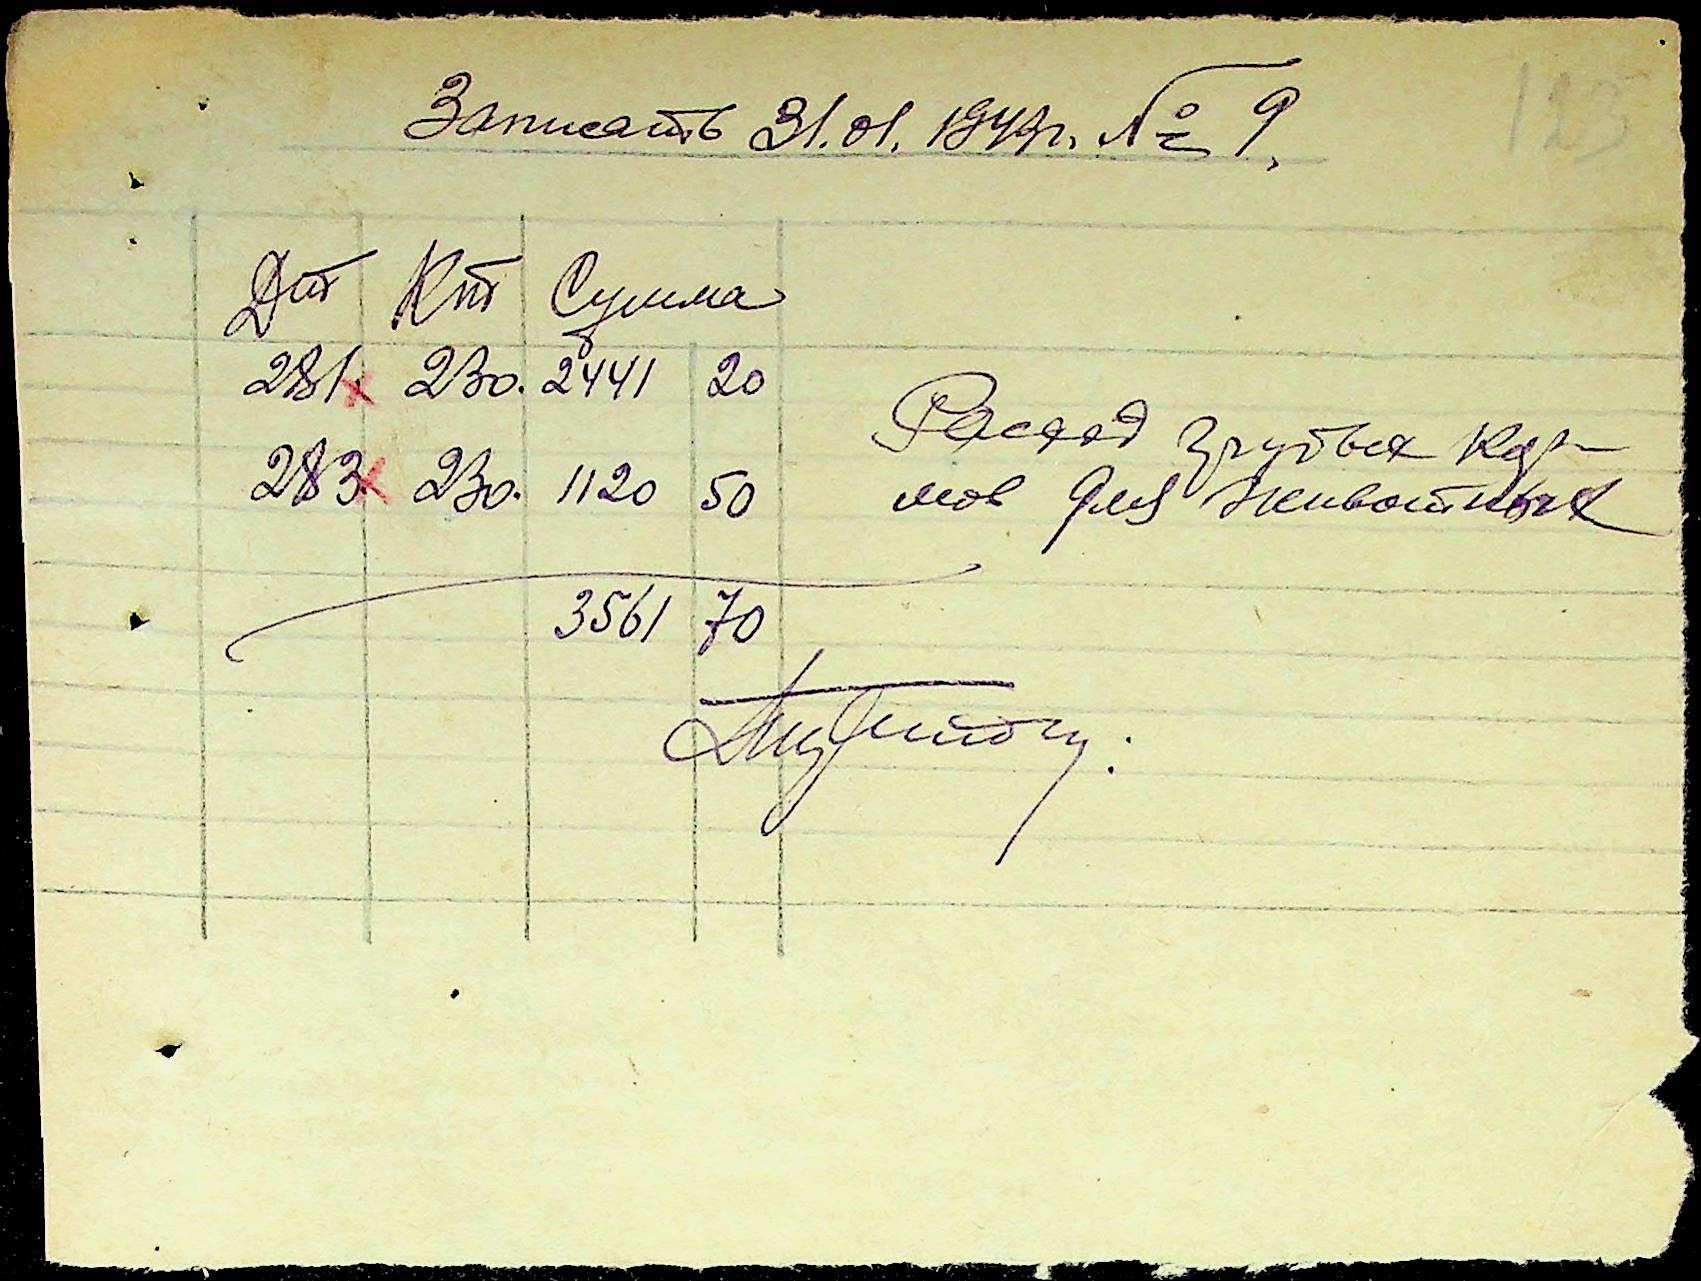 Записать 31.01.1943г. № 9.
123
Дт Кт Сумма
281. 230. 2441 20
283. 230. 1120 50
Расход грубых кор-
мов для животных
3561 70